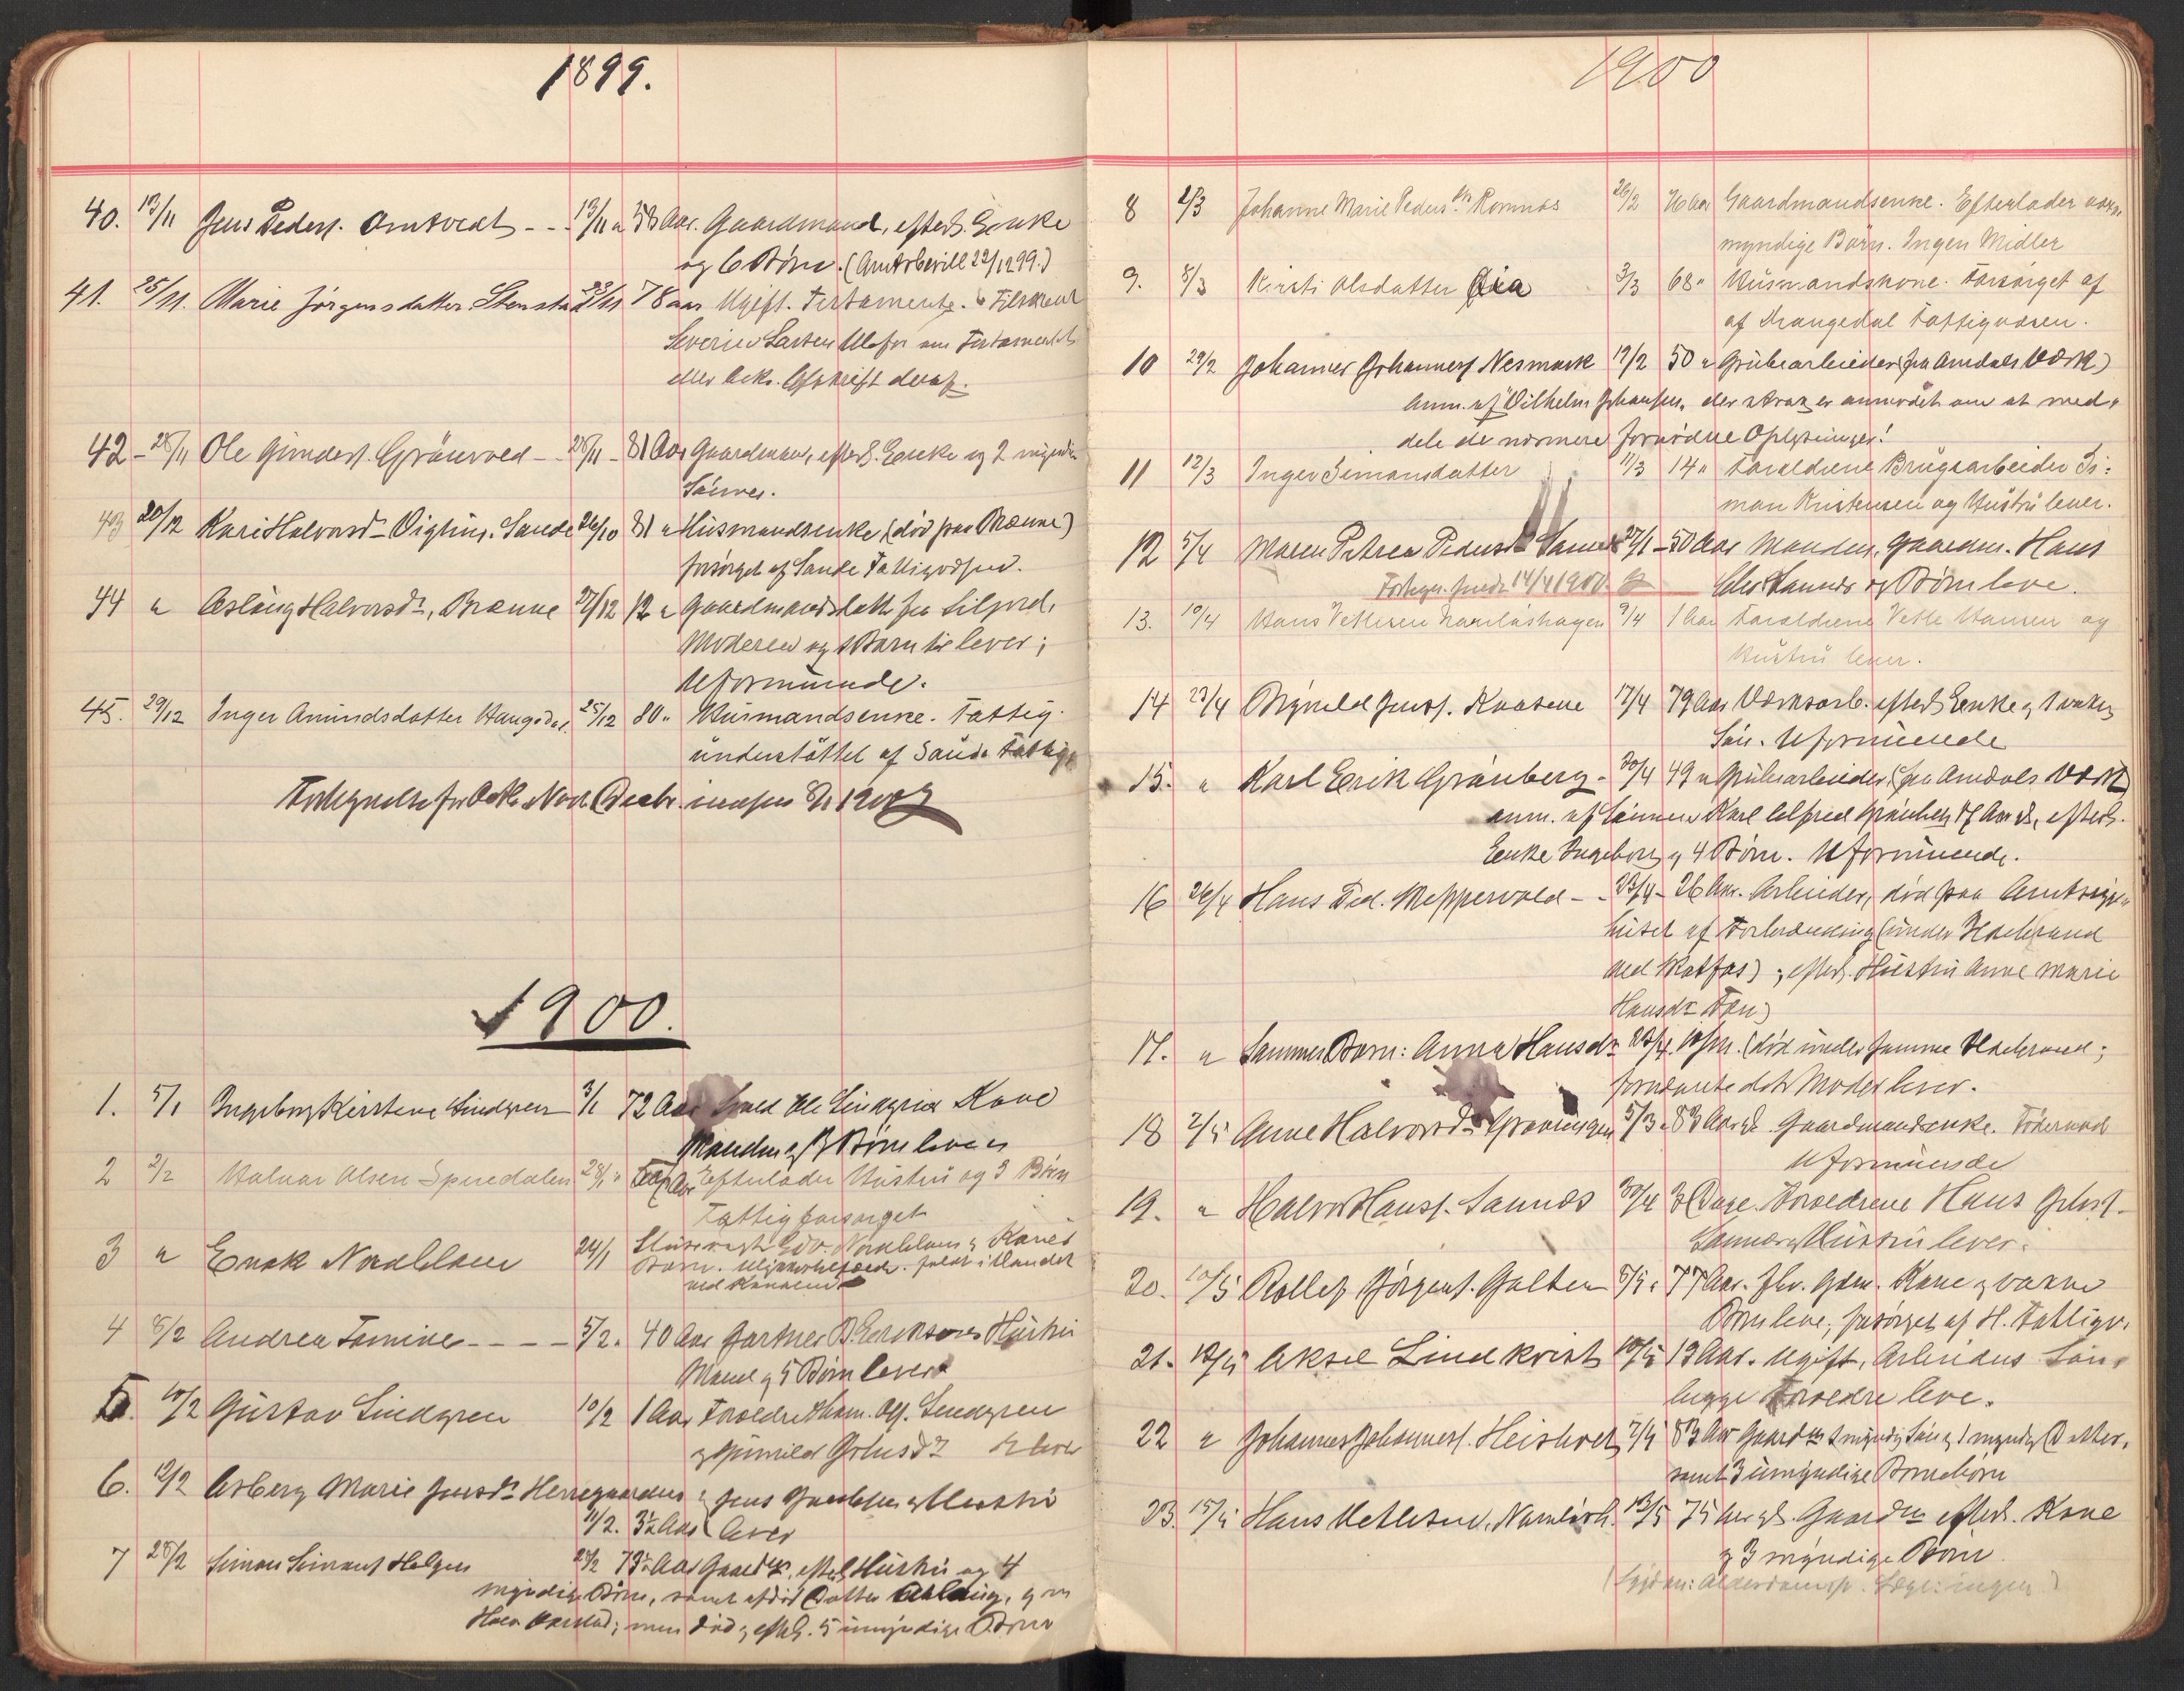 1899.
40. 13/11 Jens Peders. Omtvedt - - 13/11 " 53 Aar. Gaardmand, efterl. Enke
og 6 Børn. (Amtsbevill 22/12 99.)
41. 25/11. Marie Jörgensdatter Stensta 23/11 78 aar Ugift. Testamente. Tilskrevet
Severin Larsen Ulefos om Testamentet
eller bekr. Afskrift deraf.
42 - 28/11 Ole Gunders. Grönvold - 28/11 - 81 Aar Gaardmand, efterl. Enke og 2 myndige
Sönner.
43 20/12 Kari Halvorsd. Sande 26/10 81 " Husmandsenke (död paa Brenne)
forsörget af Sande Fattigvæsen.
44 " Aslaug Halvorsdr, Brenne 12 " Gaardmandsdatter fra Siljord.
Moderen og 1 Barn til lever;
Uformuende.
45. 29/12 Inger Amundsdatter Haugsdal. 25/12 80 " Husmandsenke. Fattig
understöttet af Saude Fattigv
Fortegnelse for Octb. Nov. Decbr. 1900
1900.
1. 5/1 Ingeborg Kirstine Lindgren 3/1 72 Aar Ole Lindgrens Kone
Manden og Börn lever
2 2/2 Halvor Olsen Spiredalen 28/1 Aar Efterlader Hustru og 3 Börn
Fattigforsörget
3 " Enok Nordblom 24/1 Edv. Nordblom & Kones
Barn. faldt i Vandet
ved Kanalen
4 8/2 Andrea Tomine - - - - 5/2. 40 Aar Gartner B. Eriksens Hustru
Mand og 5 Børn lever
5. 10/2 Gustav Lindgren 10/2 1 Aar Forældre Lindgren
og Gunnild Johsdr lever
6. 12/2 Asberg Marie Jensdr Herregaarden : Jens Jacobsen og Hustru
11/2. 3½ Aar lever
7 28/2 Simon Simons. Helgen 73½ Aar Gaardm. efterl. Hustru og 4
myndige Börn, samt afdöd Datter Aslaug,
men död, efterl. 5 umyndige Börn
1900
8 2/3 Johanne Marie Pedersdr Romnos 26/2 76 Aar Gaardmandsenke. Efterlader
myndige Börn. Ingen Midler
9. 8/3 Kirsti Olsdatter Lia 3/3 68 " Husmandskone. Forsörget af
af Drangedal Fattigvæsen.
10 29/2 Johannes Johanness. Nesmark 19/2 50 " Grubearbeider (fra Omdals Værk)
Anm. af Vilhelm Johansen, der strax er anmodet om at med-
dele de nærmere fornödne Oplysninger!
11 12/3 Inger Simonsdatter 11/3 14 " Forældrene Brugsarbeider Si-
mon Kristensen og Hustru lever.
12 5/4 Maren Petrea Pedersdr 27/1 - 50 Aar Manden, Gaardm. Hans
14/4 1900 og Børn leve.
13. 10/4 Hans Vetlesen Namlöshagen 9/4 1 Aar Forældrene Vetle Hansen og
Hustru lever.
14 23/4 Brynild Jenss. Kaasene 17/4 79 Aar Værksarb. efterl. Enke og 1 voksen
Sön. Uformuende
15. " Karl Erik Grönberg - 20/4 49 " Grubearbeider, (fra Omdals Værk)
anm. af Sönnen Karl Alfred Grönberg 17 Aar gl, efterl.
Enke Ingeborg og 4 Börn. Uformuende.
16 26/4 Hans Ped. Meppervold - - 23/4 - 26 Aar. Arbeider, död paa Amtssyge-
huset af Forbrænding (under Ildebrand
ved Vatfos); efterl. Hustru Anne Marie
Hansdr
17. " Sammes Barn: Anna Hansdr 23/4. (död under samme Ildebrand;
fornævnte dets Moder lever.
18 2/5 Anne Halvorsdr Graningen 5/3 " 83 Aar gl. Gaardmandsenke. Föderaad
Uformuende
19. " Halvor Hanss. Sannes 30/4 3 Dage. Forældrene Hans Johs.
Sannes og Hustru lever.
20. 10/5 Rollef Jörgens. Galten 8/5 " 77 Aar. fhv. Gdm. Kone og voxne
Börn leve; forsörget af H. Fattigv.
21. 12/5 Aksel Lindkvist 10/5 19 Aar. Ugift, Arbeiders Sön,
begge Forældre leve.
22 " Johannes Johanness. Heisholt 7/5 83 Aar Gaardm 2 myndig Sön & 1 myndig Datter,
samt 3 umyndige Bornebörn
23. 15/5 Hans Vetlesen, Namlösh. 13/5 75 Aar gl. Gaardm efterl. Kone
og 3 myndige Börn.
(Sygdom: Alderdomssv. Læge: ingen)